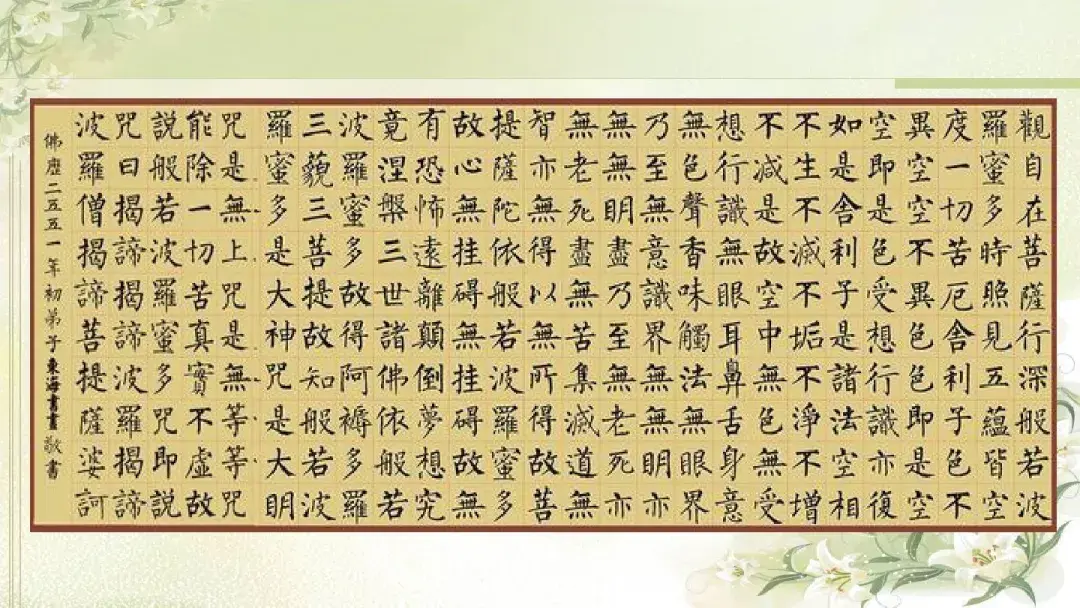 觀自在菩薩行深般若波
羅蜜多時照見五蘊皆空
度一切苦厄舍利子色不
異空空不異色色即是空
空即是色受想行識亦復
如是舍利子是諸法空相
不生不滅不垢不淨不增
不減是故空中無色無受
想行識無眼耳鼻舌身意
無色聲香味觸法無眼界
乃至無意識界無無明亦
無無明盡乃至無老死亦
無老死盡無苦集滅道無
智亦無得以無所得故菩
提薩陀依般若波羅蜜多
故心無挂礙無挂礙故無
有恐怖遠離顛倒夢想究
竟涅槃三世諸佛依般若
波羅蜜多故得阿耨多羅
三藐三菩提故知般若波
羅蜜多是大神咒是大明
咒是無上咒是無等等咒
能除一切苦真實不虛故
說般若波羅蜜多咒即說
咒曰揭諦揭諦波羅揭諦
波羅僧揭諦菩提薩婆訶
佛曆二五五一年初弟子東海書敬書